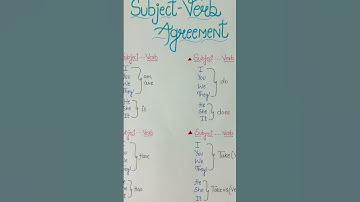 Subject-Verb
Agreement
Subject Verb
I
You
We
They
am
are
He
She
It
Is
▲ Subject Verb
I
You
We
They
do
He
She
It
Subject Verb
Have
Has
▲ Subject Verb
I
You
We
They
Take
He
She
It